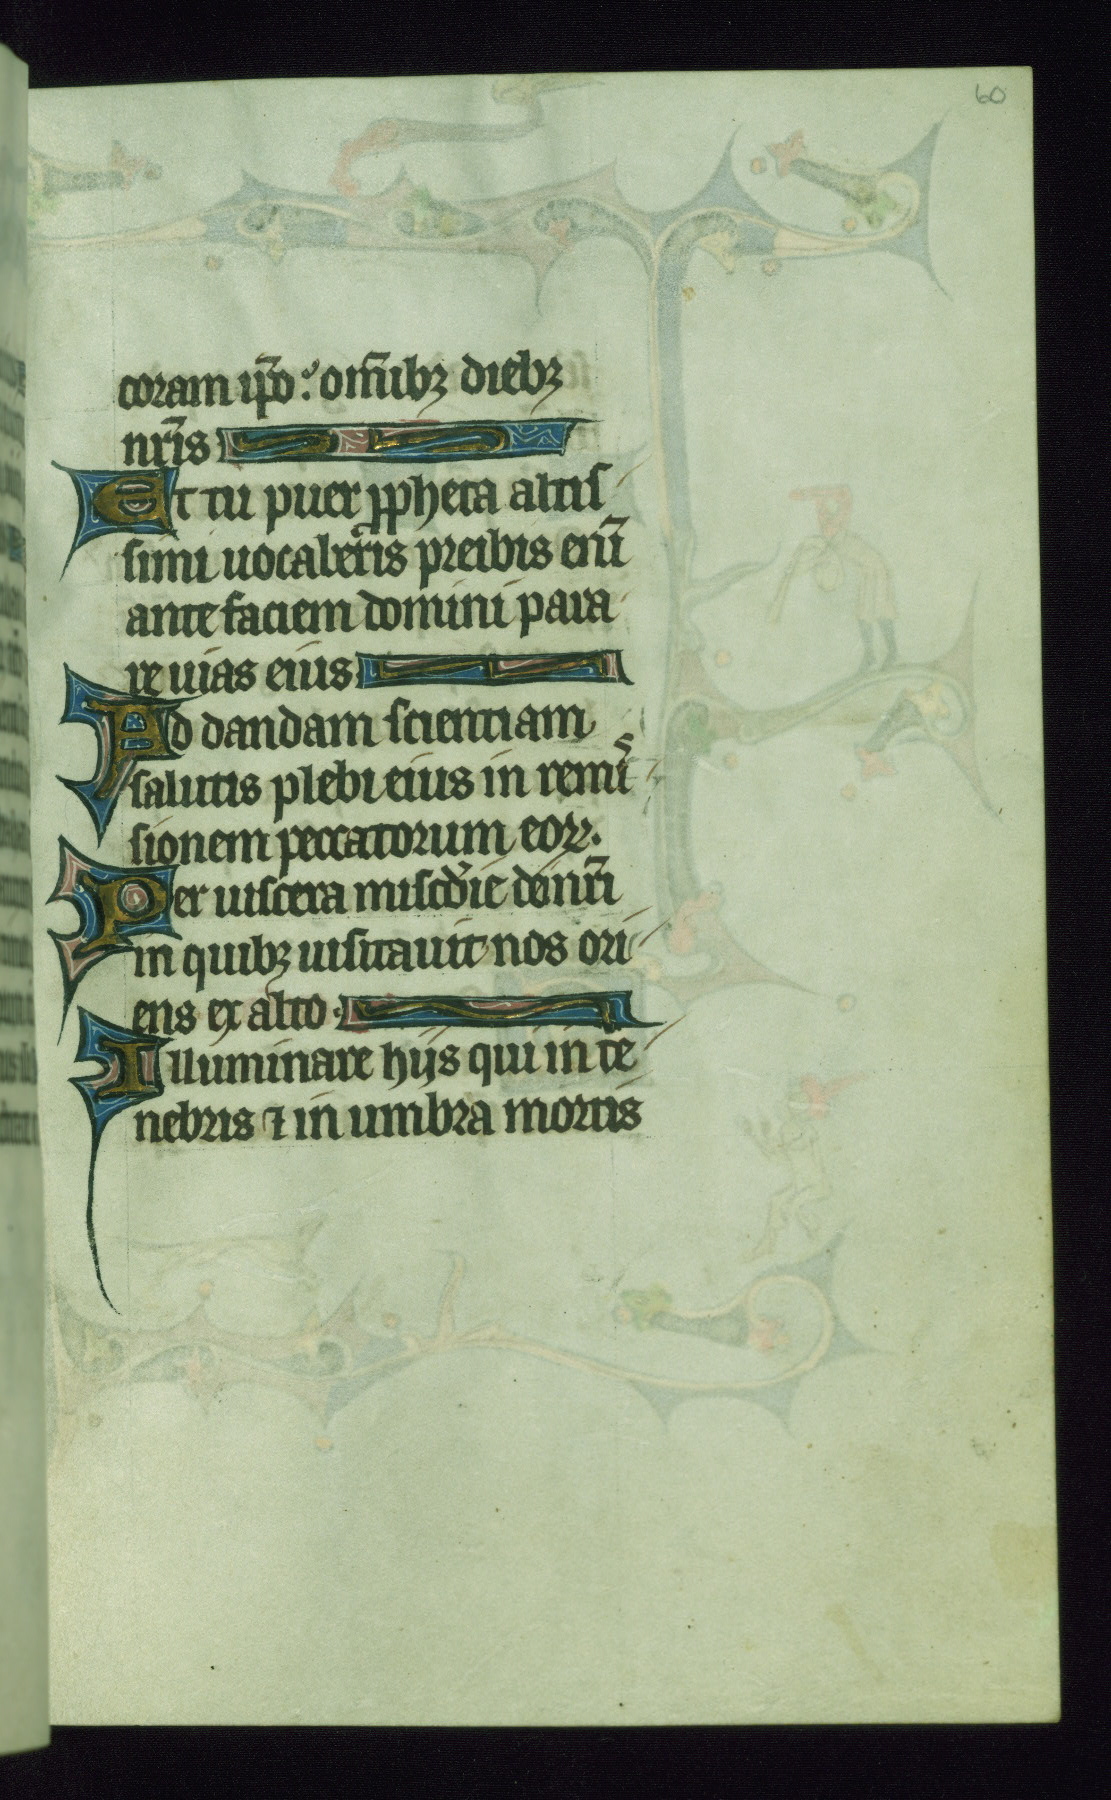 60
coram ip̄o: om̄ibꝫ diebꝫ
nr̄is
Et tu puer ꝓpheta altis
simi uocaberis preibis eni̅
ante faciem domini para
re uias eius
Ad dandam scientiam
salutis plebi eius in remis
sionem peccatorum eoꝝ.
Per uiscera mis̄cdie dei nr̄i
in quibꝫ uisitauit nos ori
ens ex alto
Illuminare hijs qui in te
nebris ⁊ in umbra mortis